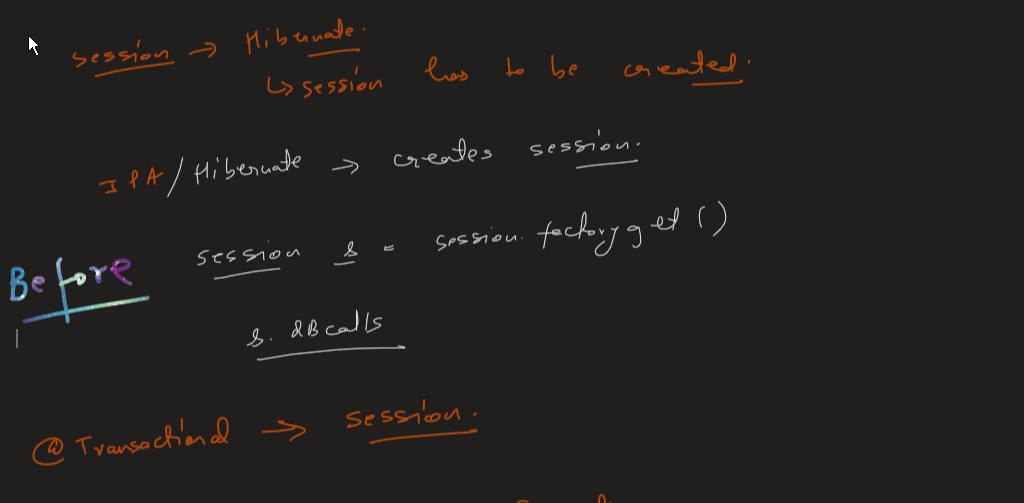 session → Hibernate.
↳ session has to be created.
JPA/Hibernate → creates session.
session s = session.factory get ()
Before
s. DB calls
@Transactional → session.